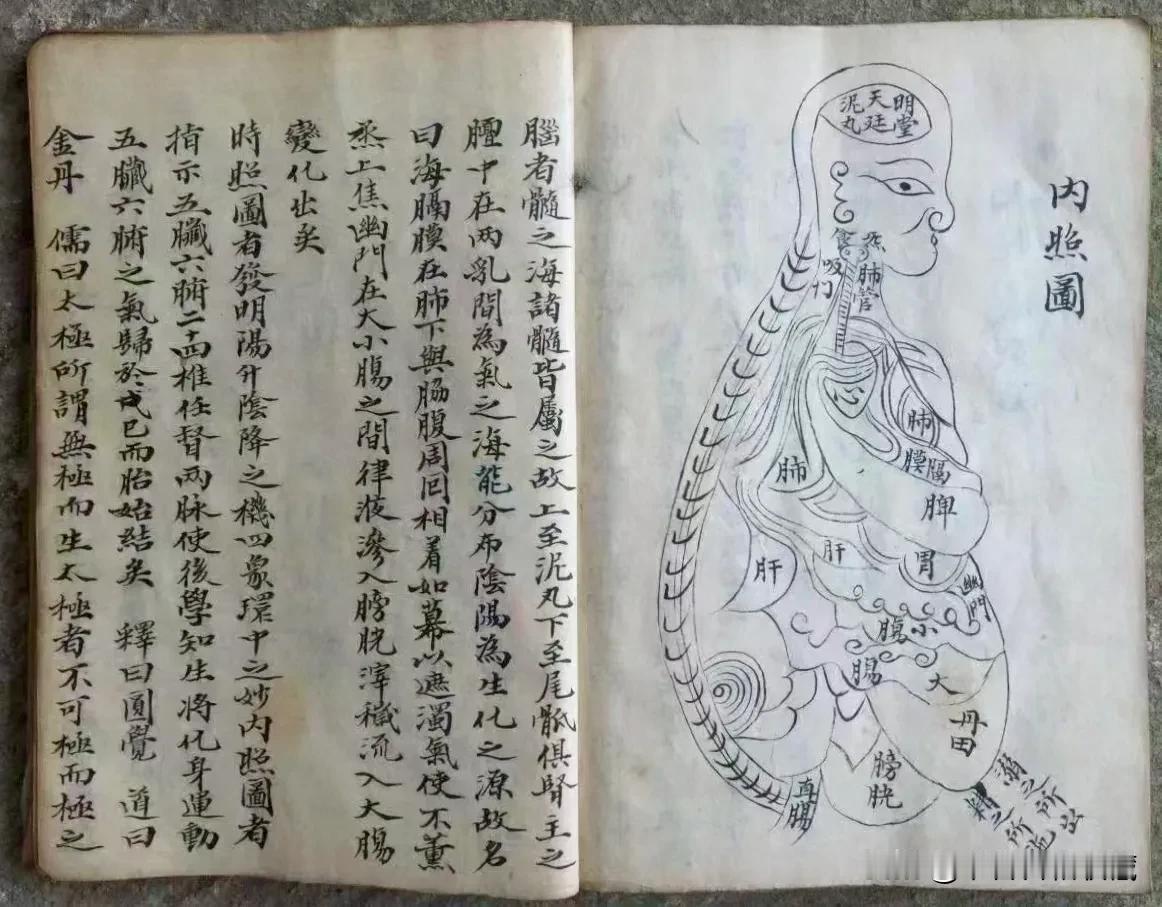 內照圖
明堂
天廷
泥丸
食
肺管
心
肺
膈膜
肺
脾
肝
肝
胃
幽門
小腹
大腸
丹田
膀胱
直腸
溺之所出
精之所
腦者髓之海諸髓皆屬之故上至泥丸下至尾骶俱腎主之
膻中在两乳間為氣之海能分布陰陽為生化之源故名
曰海膈膜在肺下與脇腹周囘相着如幕以遮濁氣使不薰
烝上焦幽門在大小腸之間律液滲入膀胱滓穢流入大腸
變化出矣
時照圖者發明陽升陰降之機四象環中之妙內照圖者
指示五臟六腑二十四椎任督两脉使後學知生將化身運動
五臟六腑之氣歸於戊已而胎始結矣 釋曰圓覺 道曰
金丹 儒曰太極所謂無極而生太極者不可極而極之